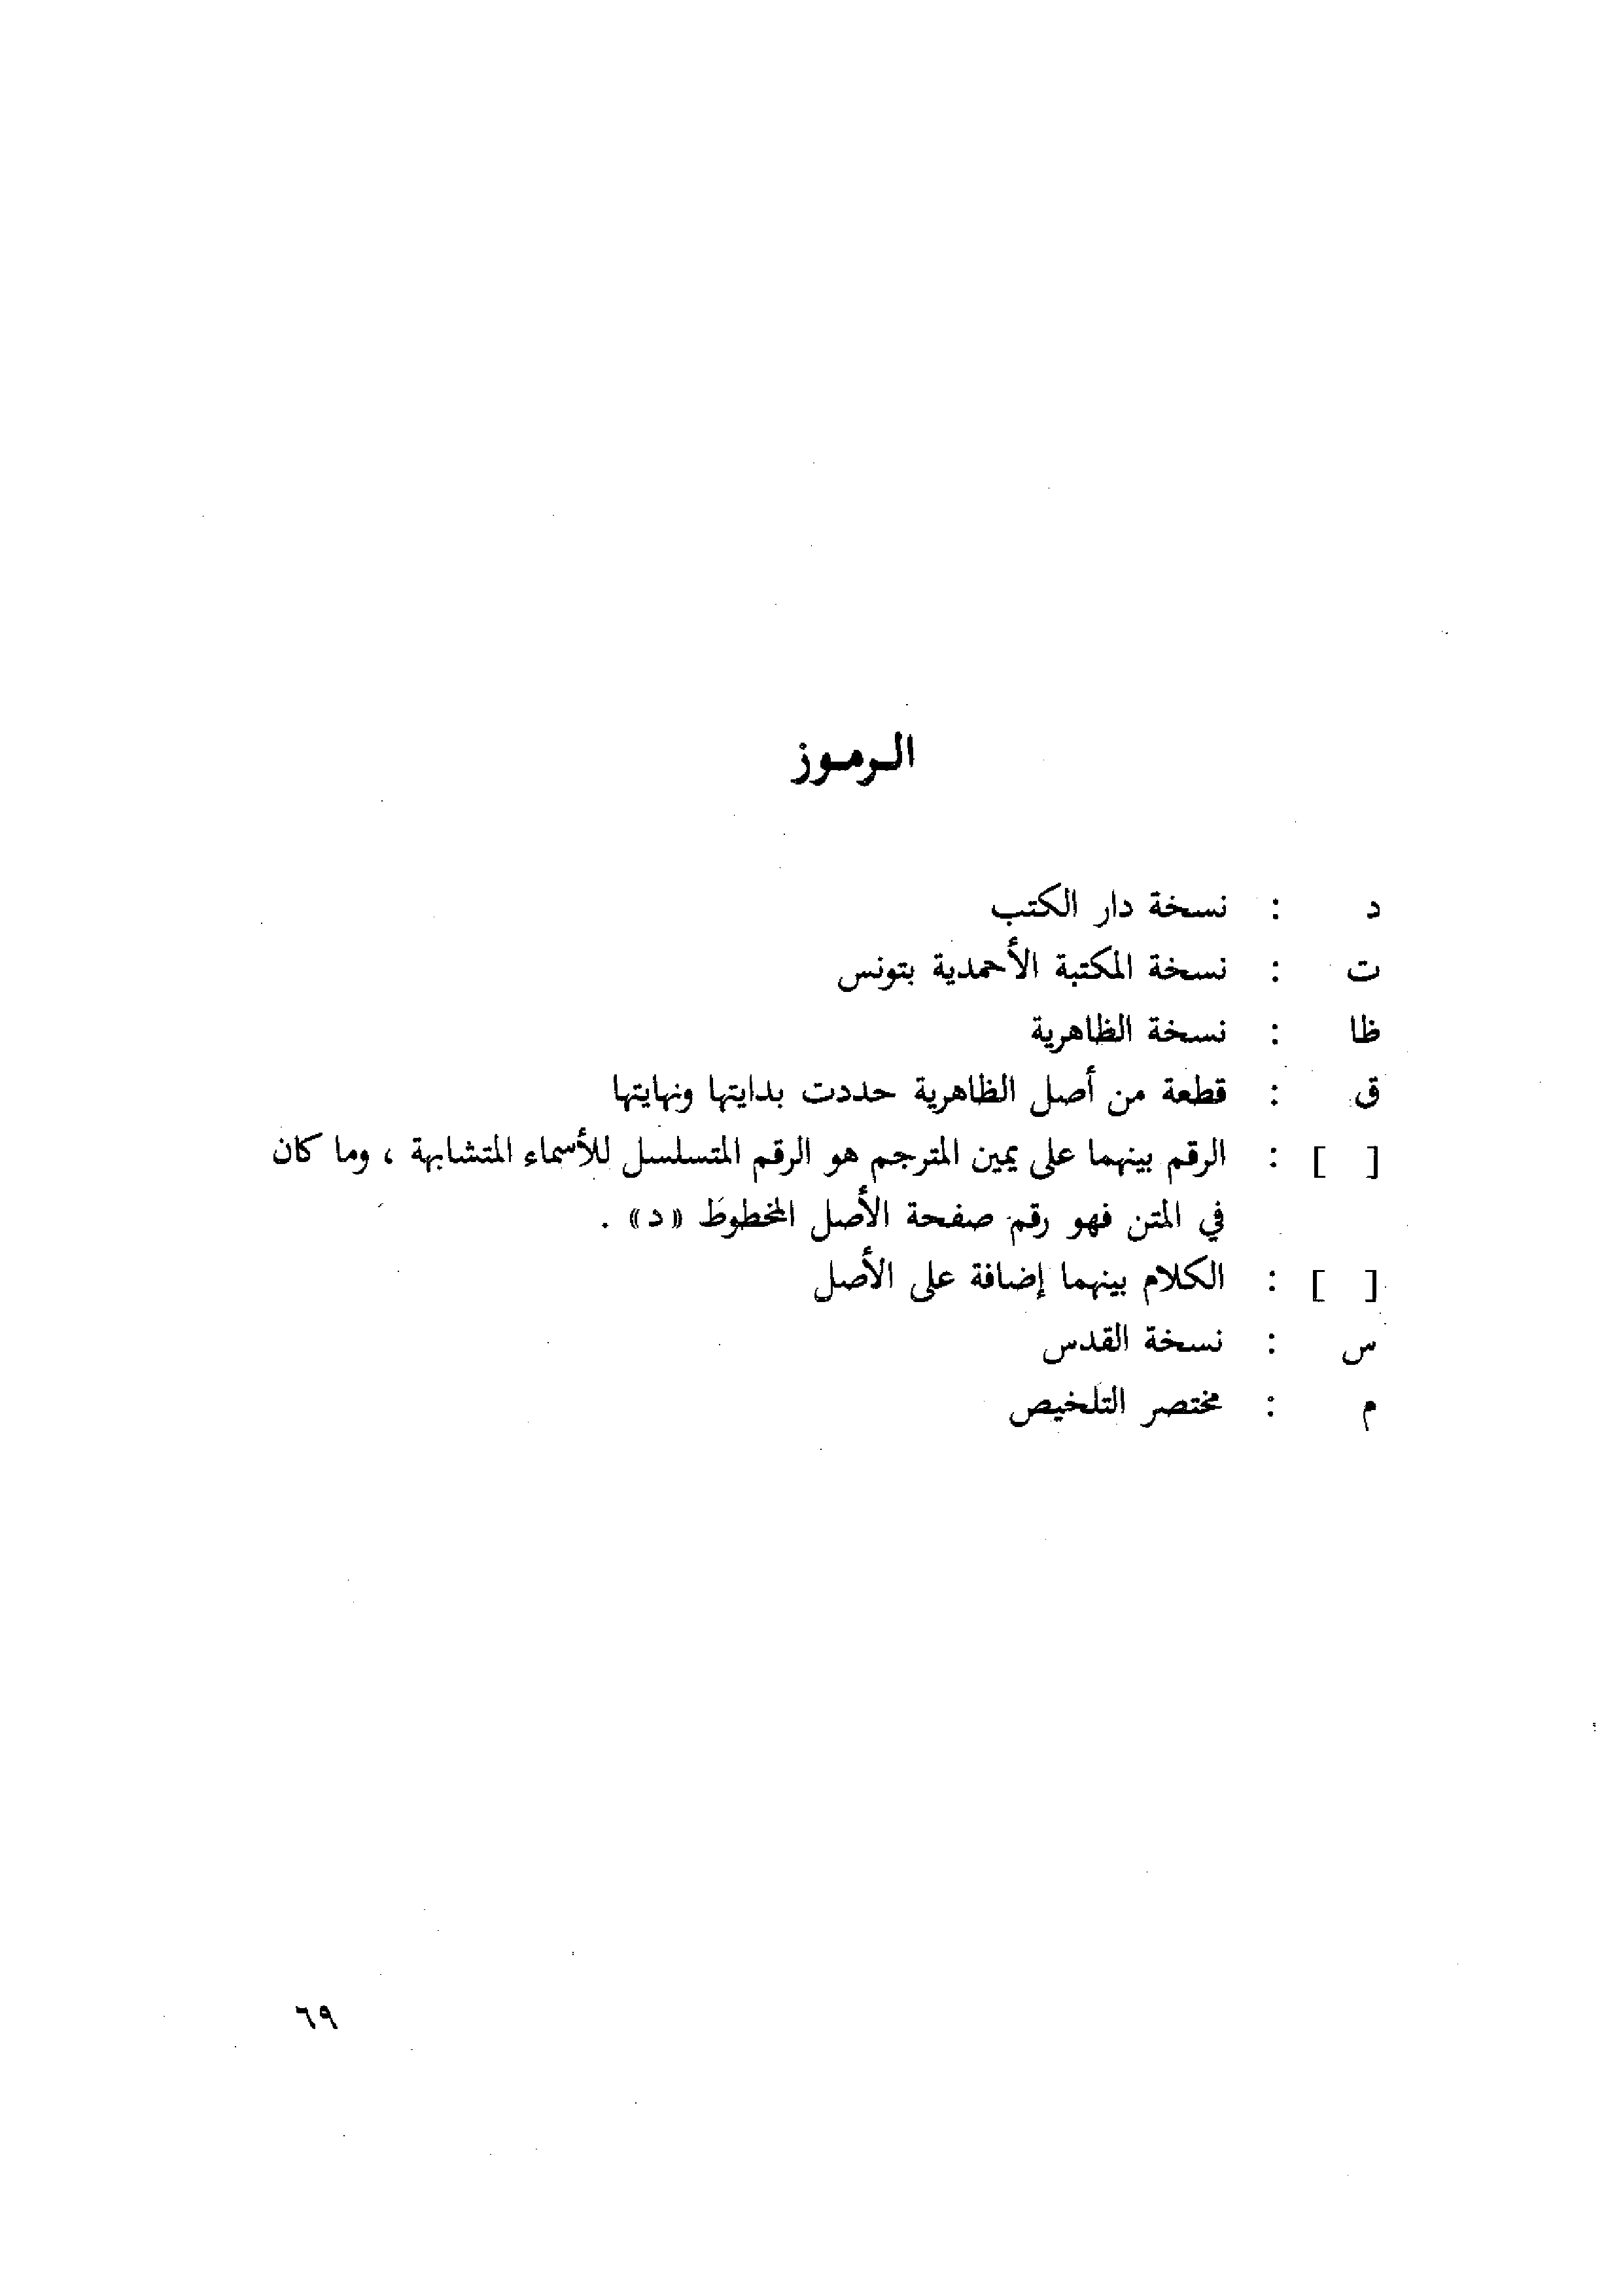 الرموز
د : نسخة دار الكتب
ت : نسخة المكتبة الأحمدية بتونس
ظا : نسخة الظاهرية
ق : قطعة من أصل الظاهرية حددت بدايتها ونهايتها
[ ] : الرقم بينهما على يمين المترجم هو الرقم المتسلسل للأسماء المتشابهة ، وما كان
في المتن فهو رقم صفحة الأصل المخطوط «د» .
[ ] : الكلام بينهما إضافة على الأصل
س : نسخة القدس
م : مختصر التلخيص
٦٩